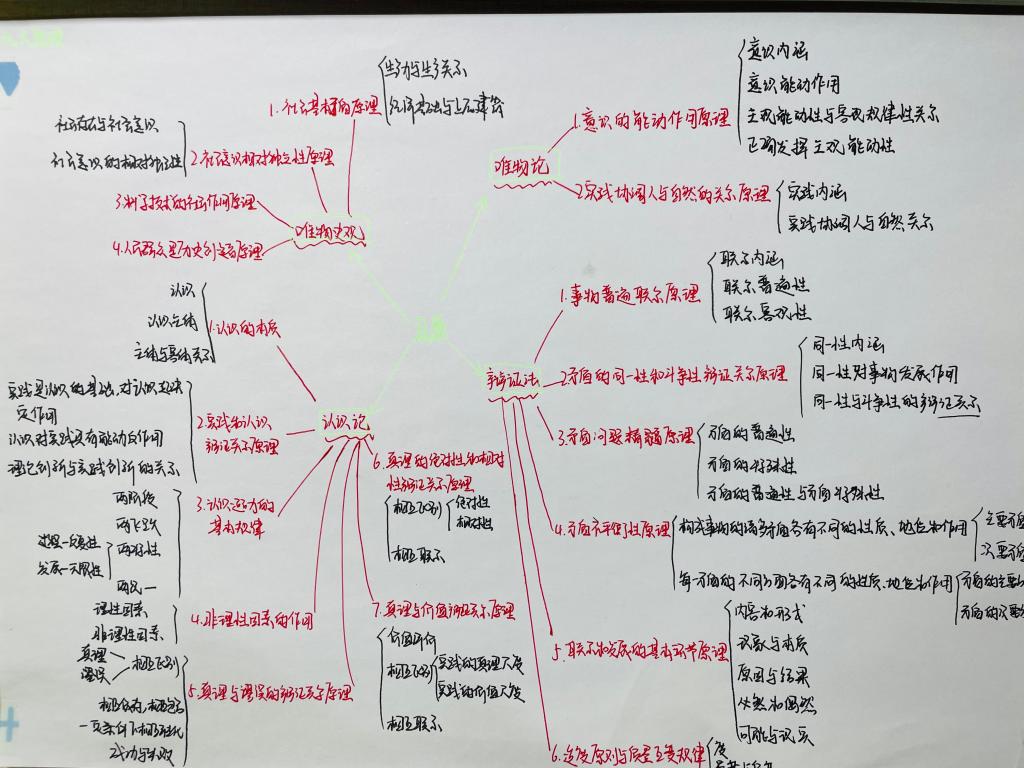 唯物论
1.意识的能动作用原理
意识内涵
意识能动作用
主观能动性与客观规律性关系
正确发挥主观能动性
2.实践协调人与自然的关系原理
实践内涵
实践协调人与自然关系
辩证法
1.事物普遍联系原理
联系内涵
联系普遍性
联系客观性
2矛盾的同一性和斗争性辩证关系原理
同一性内涵
同一性对事物发展作用
同一性与斗争性的辩证关系
3.矛盾问题精髓原理
矛盾的普遍性
矛盾的特殊性
矛盾的普遍性与矛盾特殊性
4.矛盾不平衡性原理
构成事物的诸多矛盾各有不同的性质、地位和作用
主要矛盾
次要矛盾
每一矛盾的不同方面各有不同的性质、地位和作用
矛盾的主要
矛盾的次要
5.联系和发展的基本环节原理
内容和形式
现象与本质
原因与结果
必然和偶然
可能与现实
6.适度原则与质量互变规律
度
认识论
1.认识的本质
认识
认识主体
主体与客体关系
2.实践和认识
辩证关系原理
实践是认识的基础,对认识起决
定作用
认识对实践具有能动反作用
理论创新与实践创新的关系
3.认识运动的
基本规律
两阶段
两飞跃
两特性
过程-反复性
发展-无限性
4.非理性因素的作用
理性因素
非理性因素
5.真理与谬误的辩证关系原理
真理
谬误
相互区别
一定条件下相互转化
成功与失败
6.真理的绝对性和相对
性辩证关系原理
相互区别
绝对性
相对性
相互联系
7.真理与价值辩证关系原理
相互区别
实践的真理尺度
实践的价值尺度
相互联系
唯物史观
1.社会基本矛盾原理
生产力与生产关系
经济基础与上层建筑
2.社会意识相对独立性原理
社会存在与社会意识
社会意识的相对独立性
3.科学技术的社会作用原理
4.人民群众是历史创造者原理